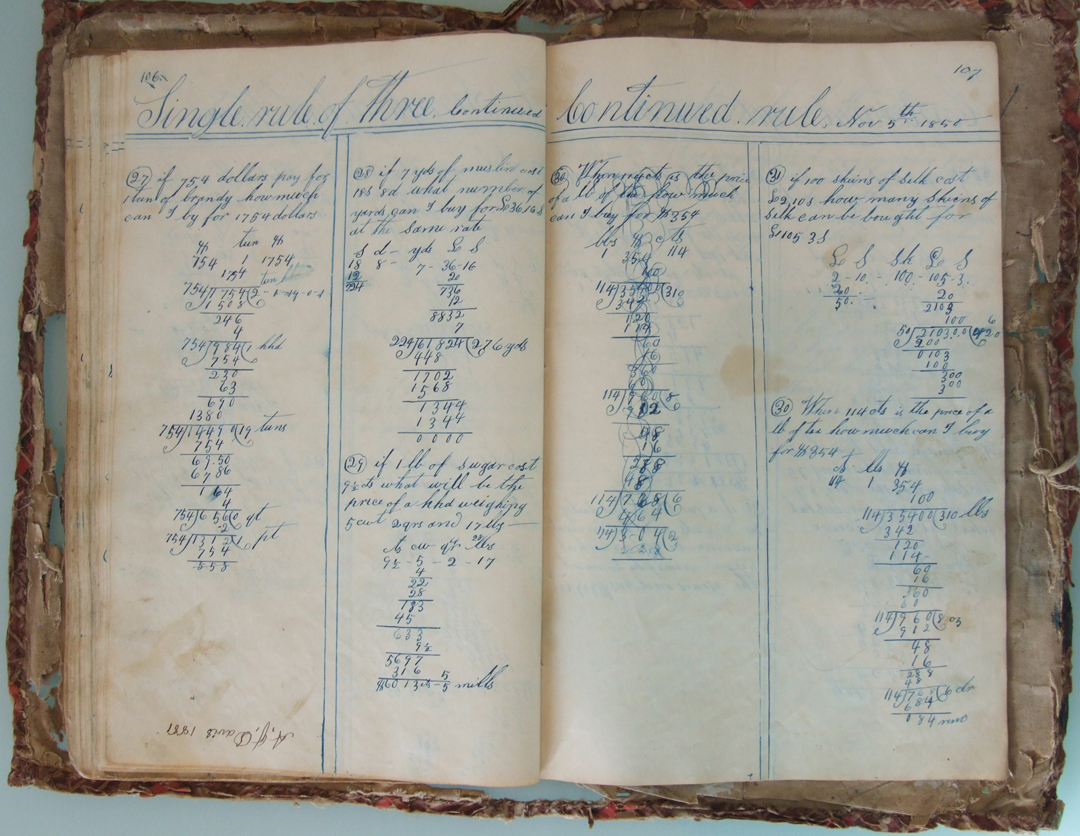 106
Single rule of three. Continued
27 if 754 dollars pay for
1 tun of brandy how much
can I by for 1754 dollars
$ tun $
754 1 1754
1754
754)1754(2
1508
246
4
754)984(1 hhd
754
230
63
690
1380
754)14490(19
754
6950
6786
164
4
qt
pt
754
558
A, J, Davis 1887
28 if 7 yds of muslin cost
18s 8d what number of
yards can I buy for £36 16s
at the same rate
S d - yds £ S
18 8 - 7 - 36-16
12 20
224 736
12
8832
7
224)61824(276 yds
448
1702
1568
1344
1344
0000
29 if 1 lb of sugar cost
9½ cts what will be the
price of a hhd weighing
5 cwt 2 qrs and 17 lbs
9½ - 5 - 2 - 17
4
22
28
183
45
633
9½
5697
316 5
5 mills
107
Continued. rule. Nov 5th 1850
30 When 114 cts is the price
of a lb of tea how much
can I buy for $354
lbs $ cts
1 354 114
342
120
114
60
16
360
48
16
288
48
31 if 100 skins of silk cost
£2,10s how many skins of
silk can be bought for
£105 3s
£ S Sk £ S
2 - 10 - 100 - 105 - 3
20 20
50 2103
100
200
0103
100
300
300
30 When 114 cts is the price of a
lb of tea how much can I buy
for $354
ct lbs $
114 1 354
100
114)35400(310 lbs
342
120
114
60
16
360
60
114)960(8 oz
912
48
16
288
48
114)768(6 dr
684
084